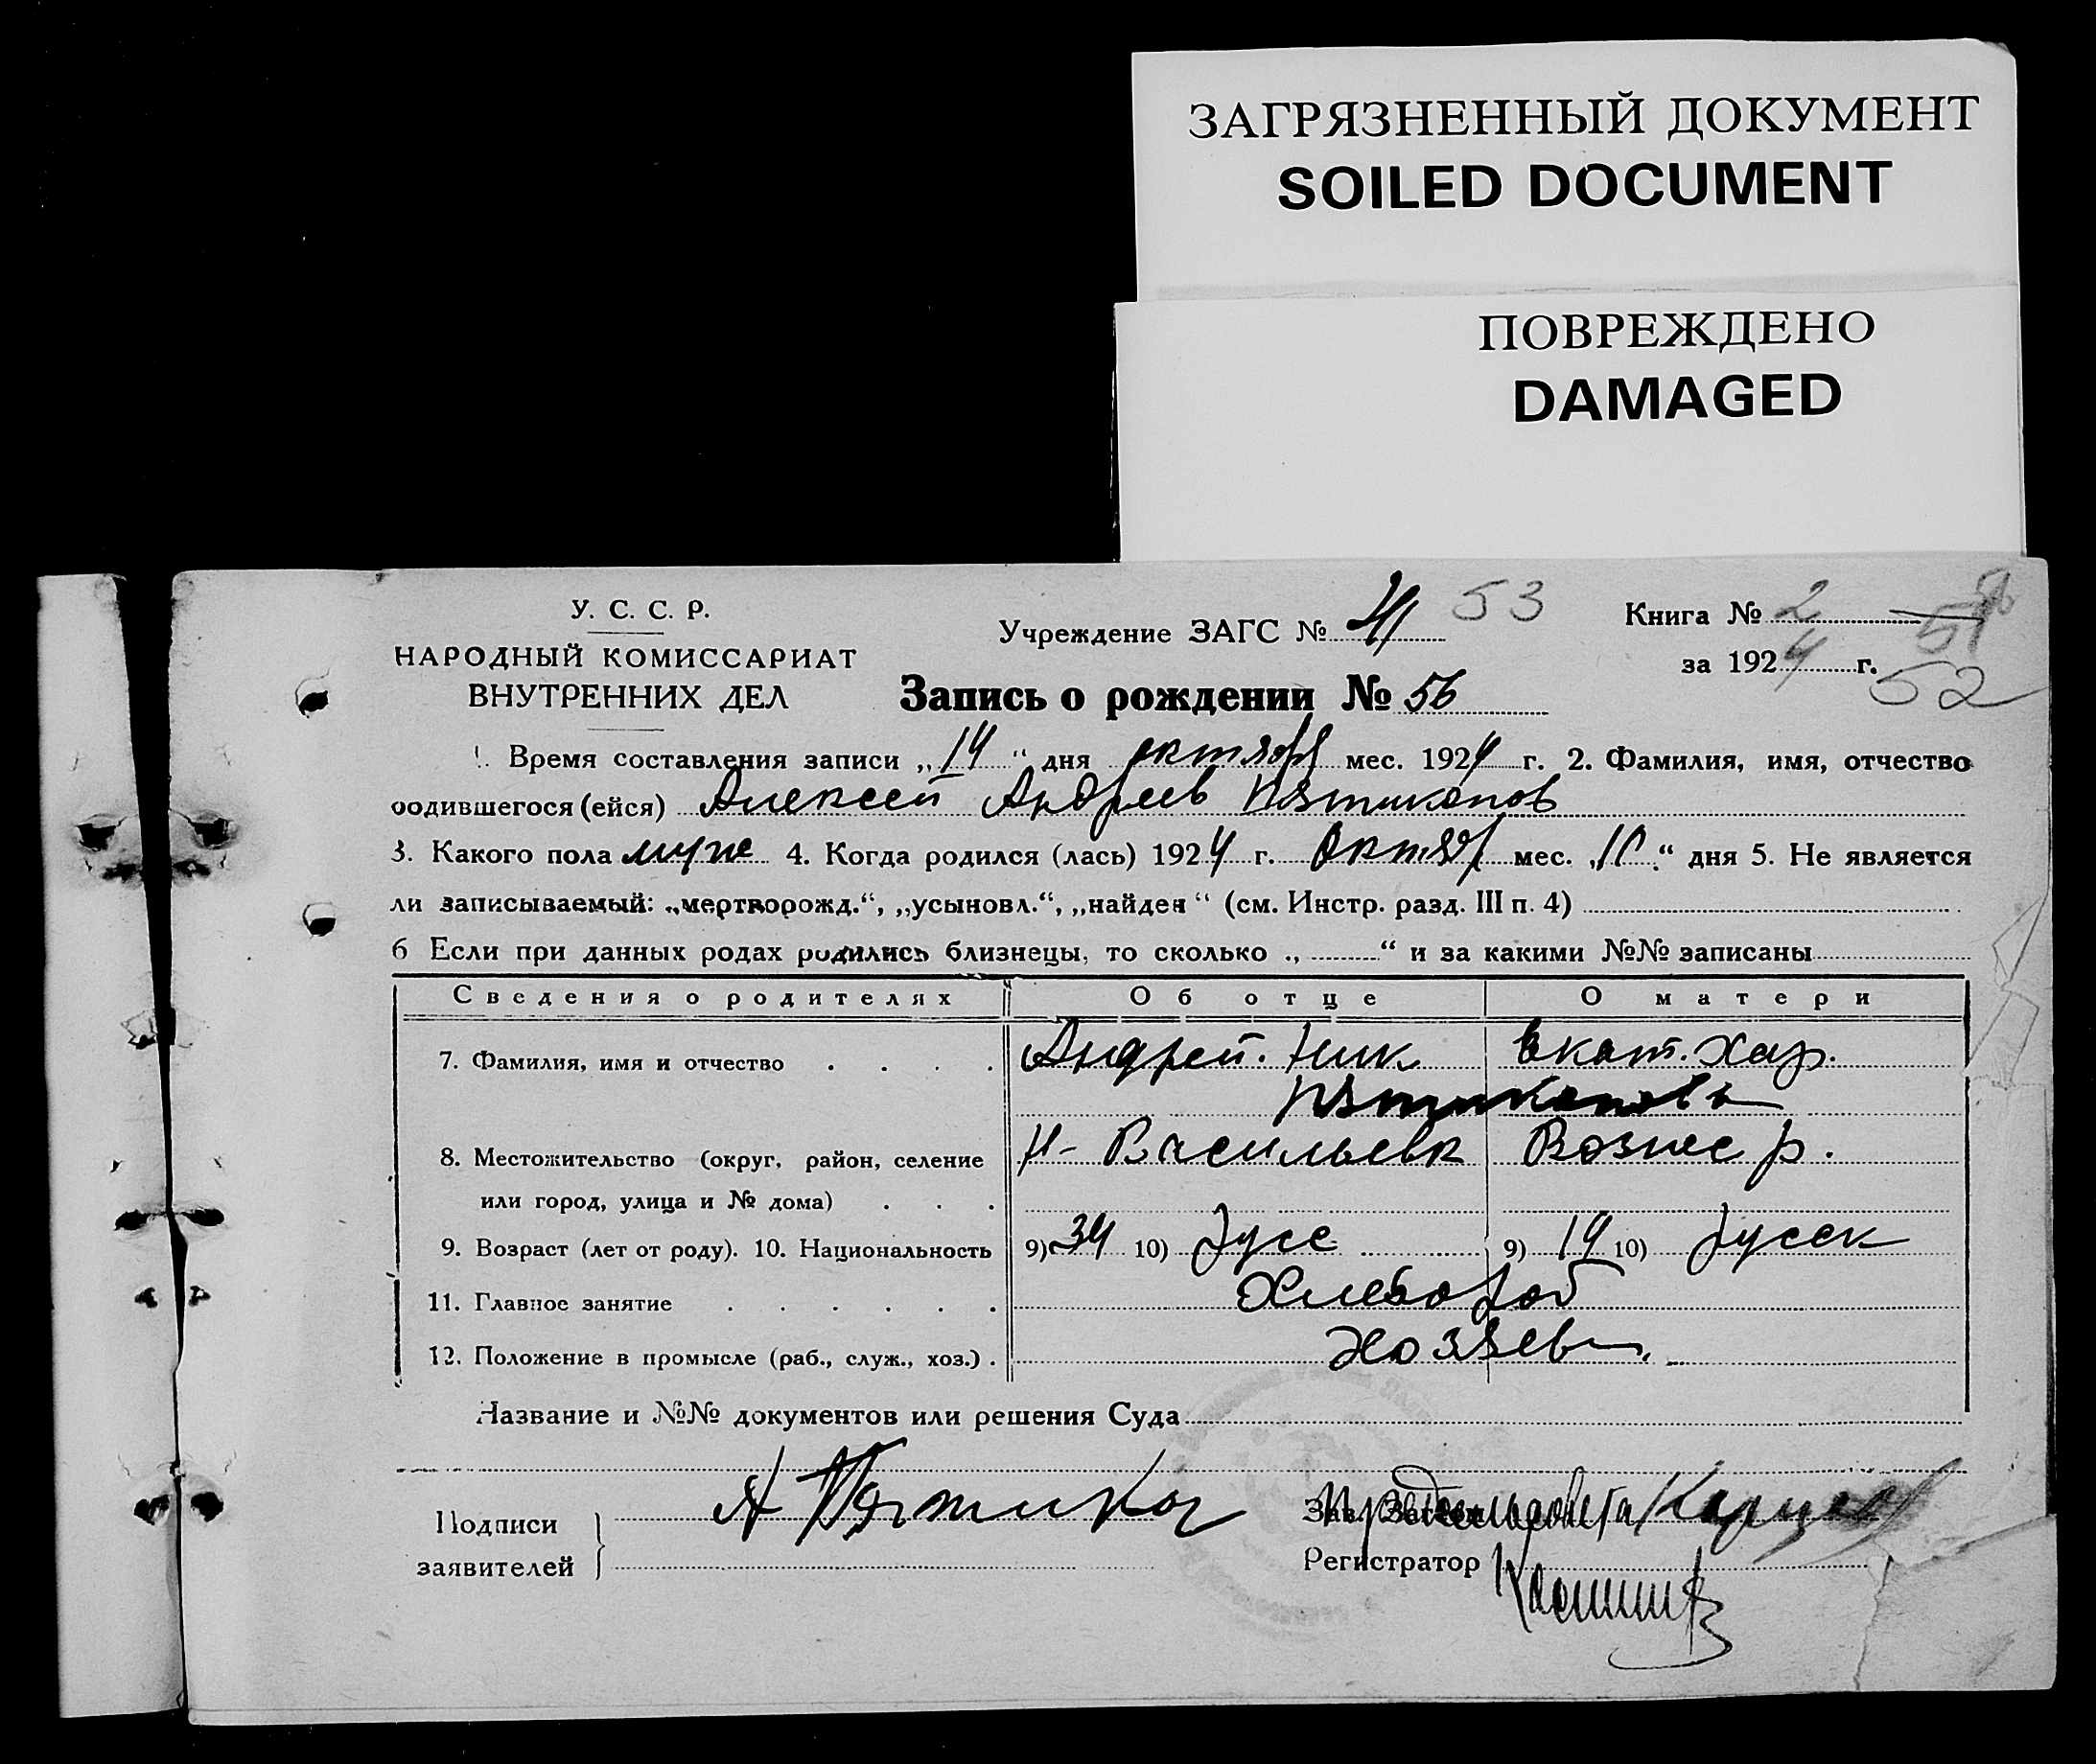 ЗАГРЯЗНЕННЫЙ ДОКУМЕНТ
SOILED DOCUMENT
ПОВРЕЖДЕНО
DAMAGED
У. С. С. Р.
НАРОДНЫЙ КОМИССАРИАТ
ВНУТРЕННИХ ДЕЛ
Учреждение ЗАГС № 53
Книга № 2
за 1924 г.
52
Запись о рождении № 56
1. Время составления записи „14“ дня октябр мес. 1924 г. 2. Фамилия, имя, отчество
родившегося (ейся) Алексей Андреев Пятикопов
3. Какого пола муж 4. Когда родился (лась) 1924 г. Октябр мес. „10“ дня 5. Не является
ли записываемый: „мертворожд.“, „усыновл.“, „найден“ (см. Инстр. разд. III п. 4)
6 Если при данных родах родились близнецы, то сколько „ “ и за какими №№ записаны
Сведения о родителях Об отце О матери
7. Фамилия, имя и отчество Андрей. Ник Екат. Хар.
Пятикоповы
8. Местожительство (округ, район, селение Н-Васильевк Вознес р.
или город, улица и № дома)
9. Возраст (лет от роду). 10. Национальность 9) 34 10) русс 9) 10) русск
11. Главное занятие Хлебороб
12. Положение в промысле (раб., служ., хоз.) Хозяева
Название и №№ документов или решения Суда
Подписи
заявителей
А Пятикоп
Зав.
Регистратор